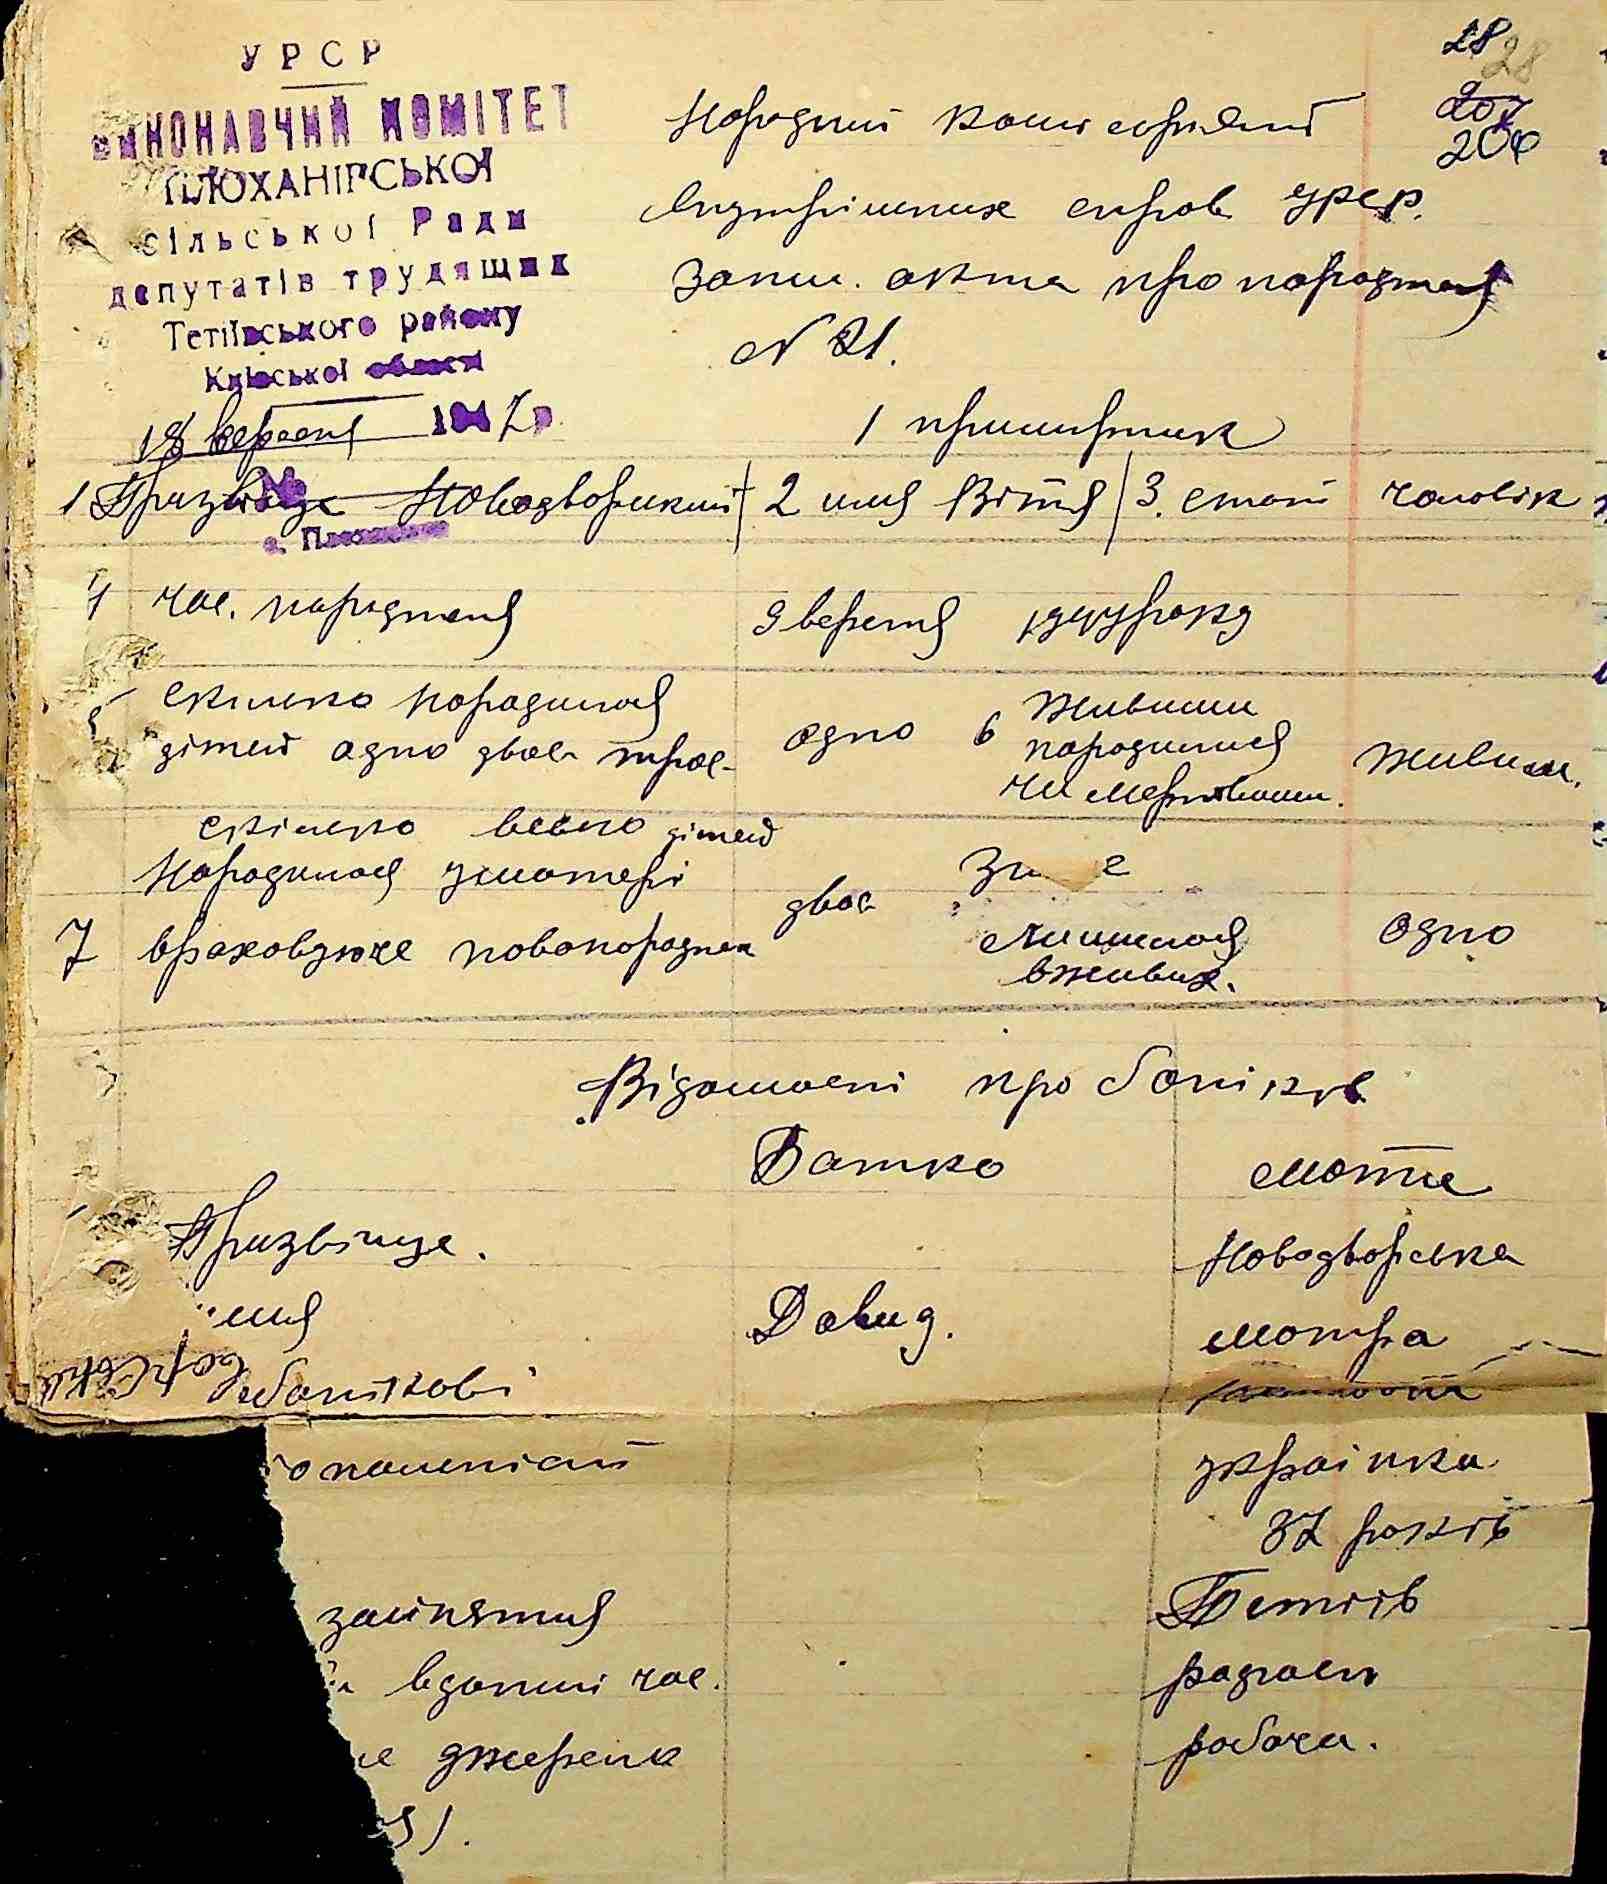 УРСР
ВИКОНАВЧИЙ КОМІТЕТ
ПЛОХАНІРСЬКОЇ
сільської Ради
депутатів трудящих
Тетіївського району
Київської області
18 вересня 1947р.
№
с.
28
28
207
206
Народний комісаріят
Внутрішних справ УРСР.
Запис. акта про народженя
N 21.
1 примирник
1 Призвіще Новодворикий 2 имя Вітя 3. стат чоловік
4 час. народженя 9 вересня року
5 скілько народилося
дітей одно двое трое- одно 6 Живими
народилися
чи мертвими. живим.
скілько всього дітей
Народилося уматері
7 враховуюче новонороджен двое
лишилося
вживих. одно
Відомості про батьків
Батько мотие
Призвіще. Новодворська
имя Довид. мотра
побатькові
українка
37 років
заинятия Тетіїв
вданий час. радгосп
джерела робоча.